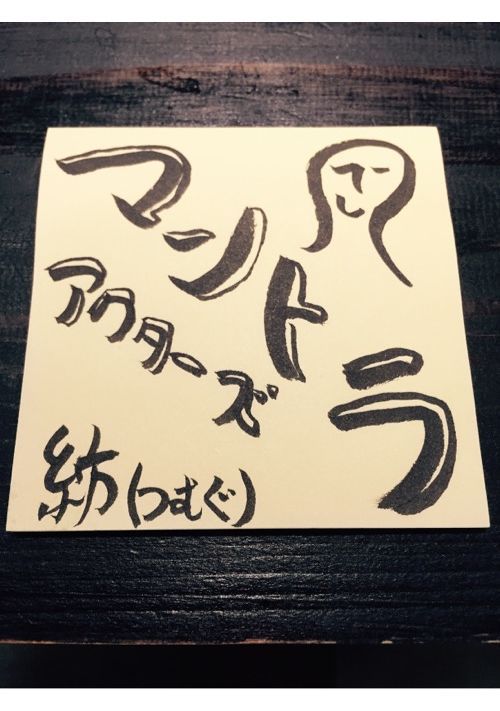 マントラ
アクターズ
紡(つむぐ)